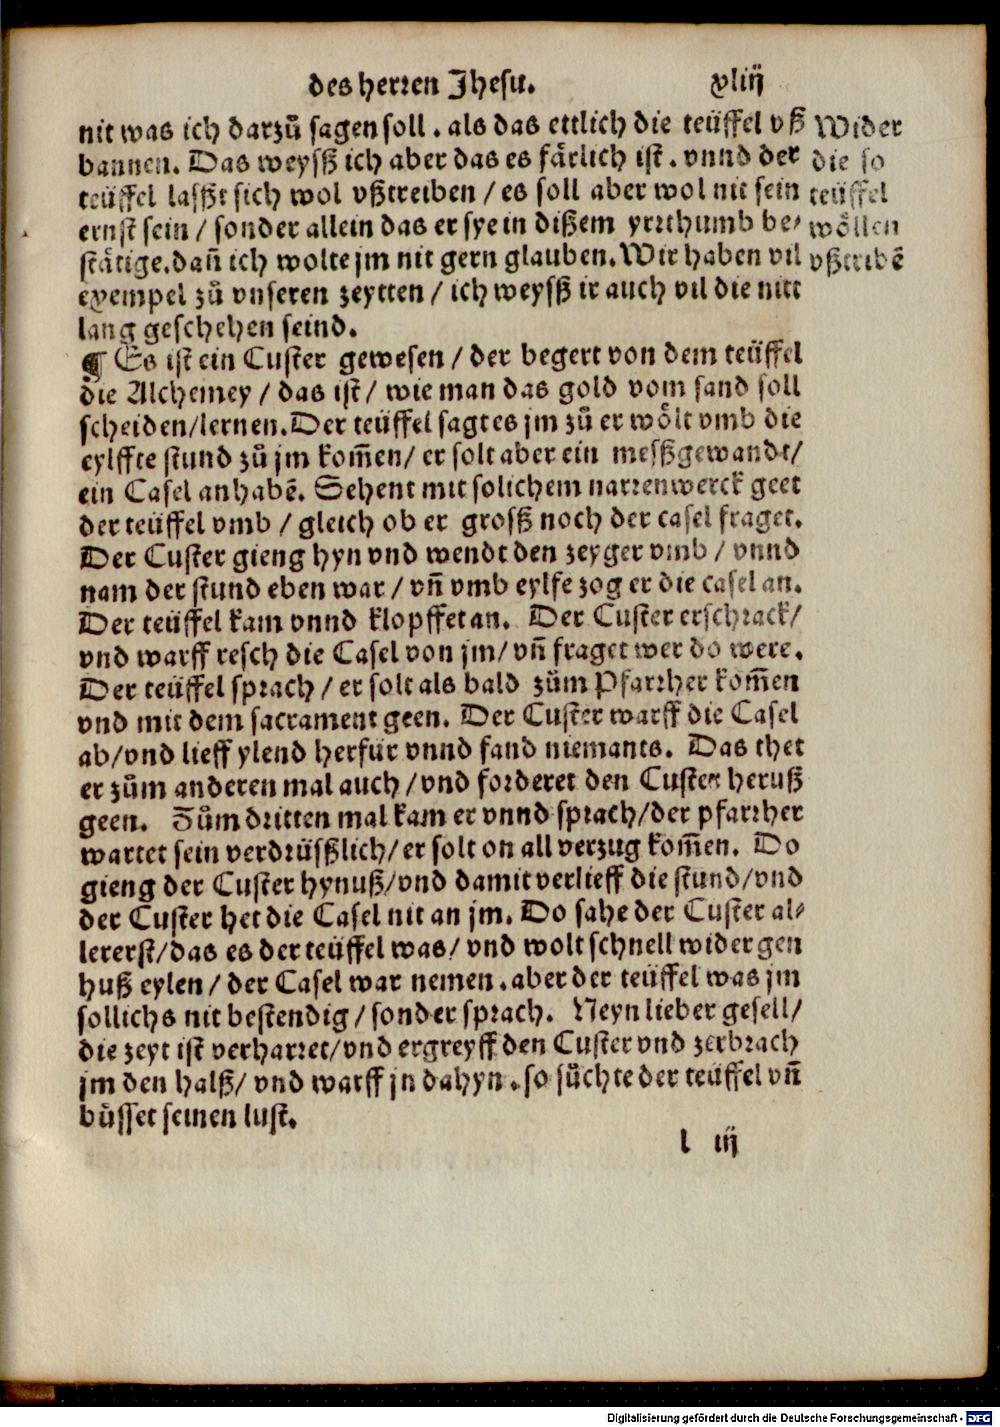 des herren Jhesu. xliij
nit was ich darzů sagen soll. als das ettlich die teüffel vß
bannen. Das weysß ich aber das es färlich ist. vnnd der
teüffel lasßt sich wol vßtreiben / es soll aber wol nit sein
ernst sein / sonder allein das er sye in dißem yrrthumb be⸗
stätige. dañ ich wolte jm nit gern glauben. Wir haben vil
exempel zů vnseren zeytten / ich weysß ir auch vil die nitt
lang geschehen seind.
Wider
die so
teüffel
wöllen
vßtribē
¶ Es ist ein Custer gewesen / der begert von dem teüffel
die Alchemey / das ist / wie man das gold vom sand soll
scheiden/lernen. Der teüffel sagt es jm zů er wölt vmb die
eylffte stund zů jm kom̄en/ er solt aber ein messßgewandt/
ein Casel anhabē. Sehent mit solichem narrenwerck geet
der teüffel vmb / gleich ob er grosß noch der casel fraget.
Der Custer gieng hyn vnd wendt den zeyger vmb / vnnd
nam der stund eben war / vñ vmb eylfe zog er die casel an.
Der teüffel kam vnnd klopffet an. Der Custer erschrack/
vnd warff resch die Casel von jm/ vñ fraget wer do were.
Der teüffel sprach / er solt als bald zům Pfarrher kom̄en
vnd mit dem sacrament geen. Der Custer warff die Casel
ab/vnd lieff ylend herfür vnnd fand niemants. Das thet
er zům anderen mal auch / vnd forderet den Custer heruß
geen. Zům dritten mal kam er vnnd sprach/der pfarrher
wartet sein verdrüsßlich/er solt on all verzug kom̄en. Do
gieng der Custer hynuß/vnd damit verlieff die stund/vnd
der Custer het die Casel nit an jm. Do sahe der Custer al⸗
lererst/das es der teüffel was/ vnd wolt schnell wider gen
huß eylen / der Casel war nemen. aber der teüffel was jm
sollichs nit bestendig / sonder sprach. Neyn lieber gesell/
die zeyt ist verharret/vnd ergreyff den Custer vnd zerbrach
jm den halß/ vnd warff jn dahyn. so sůchte der teüffel vñ
bůsset seinen lust.
l iij
Digitalisierung gefördert durch die Deutsche Forschungsgemeinschaft - DFG